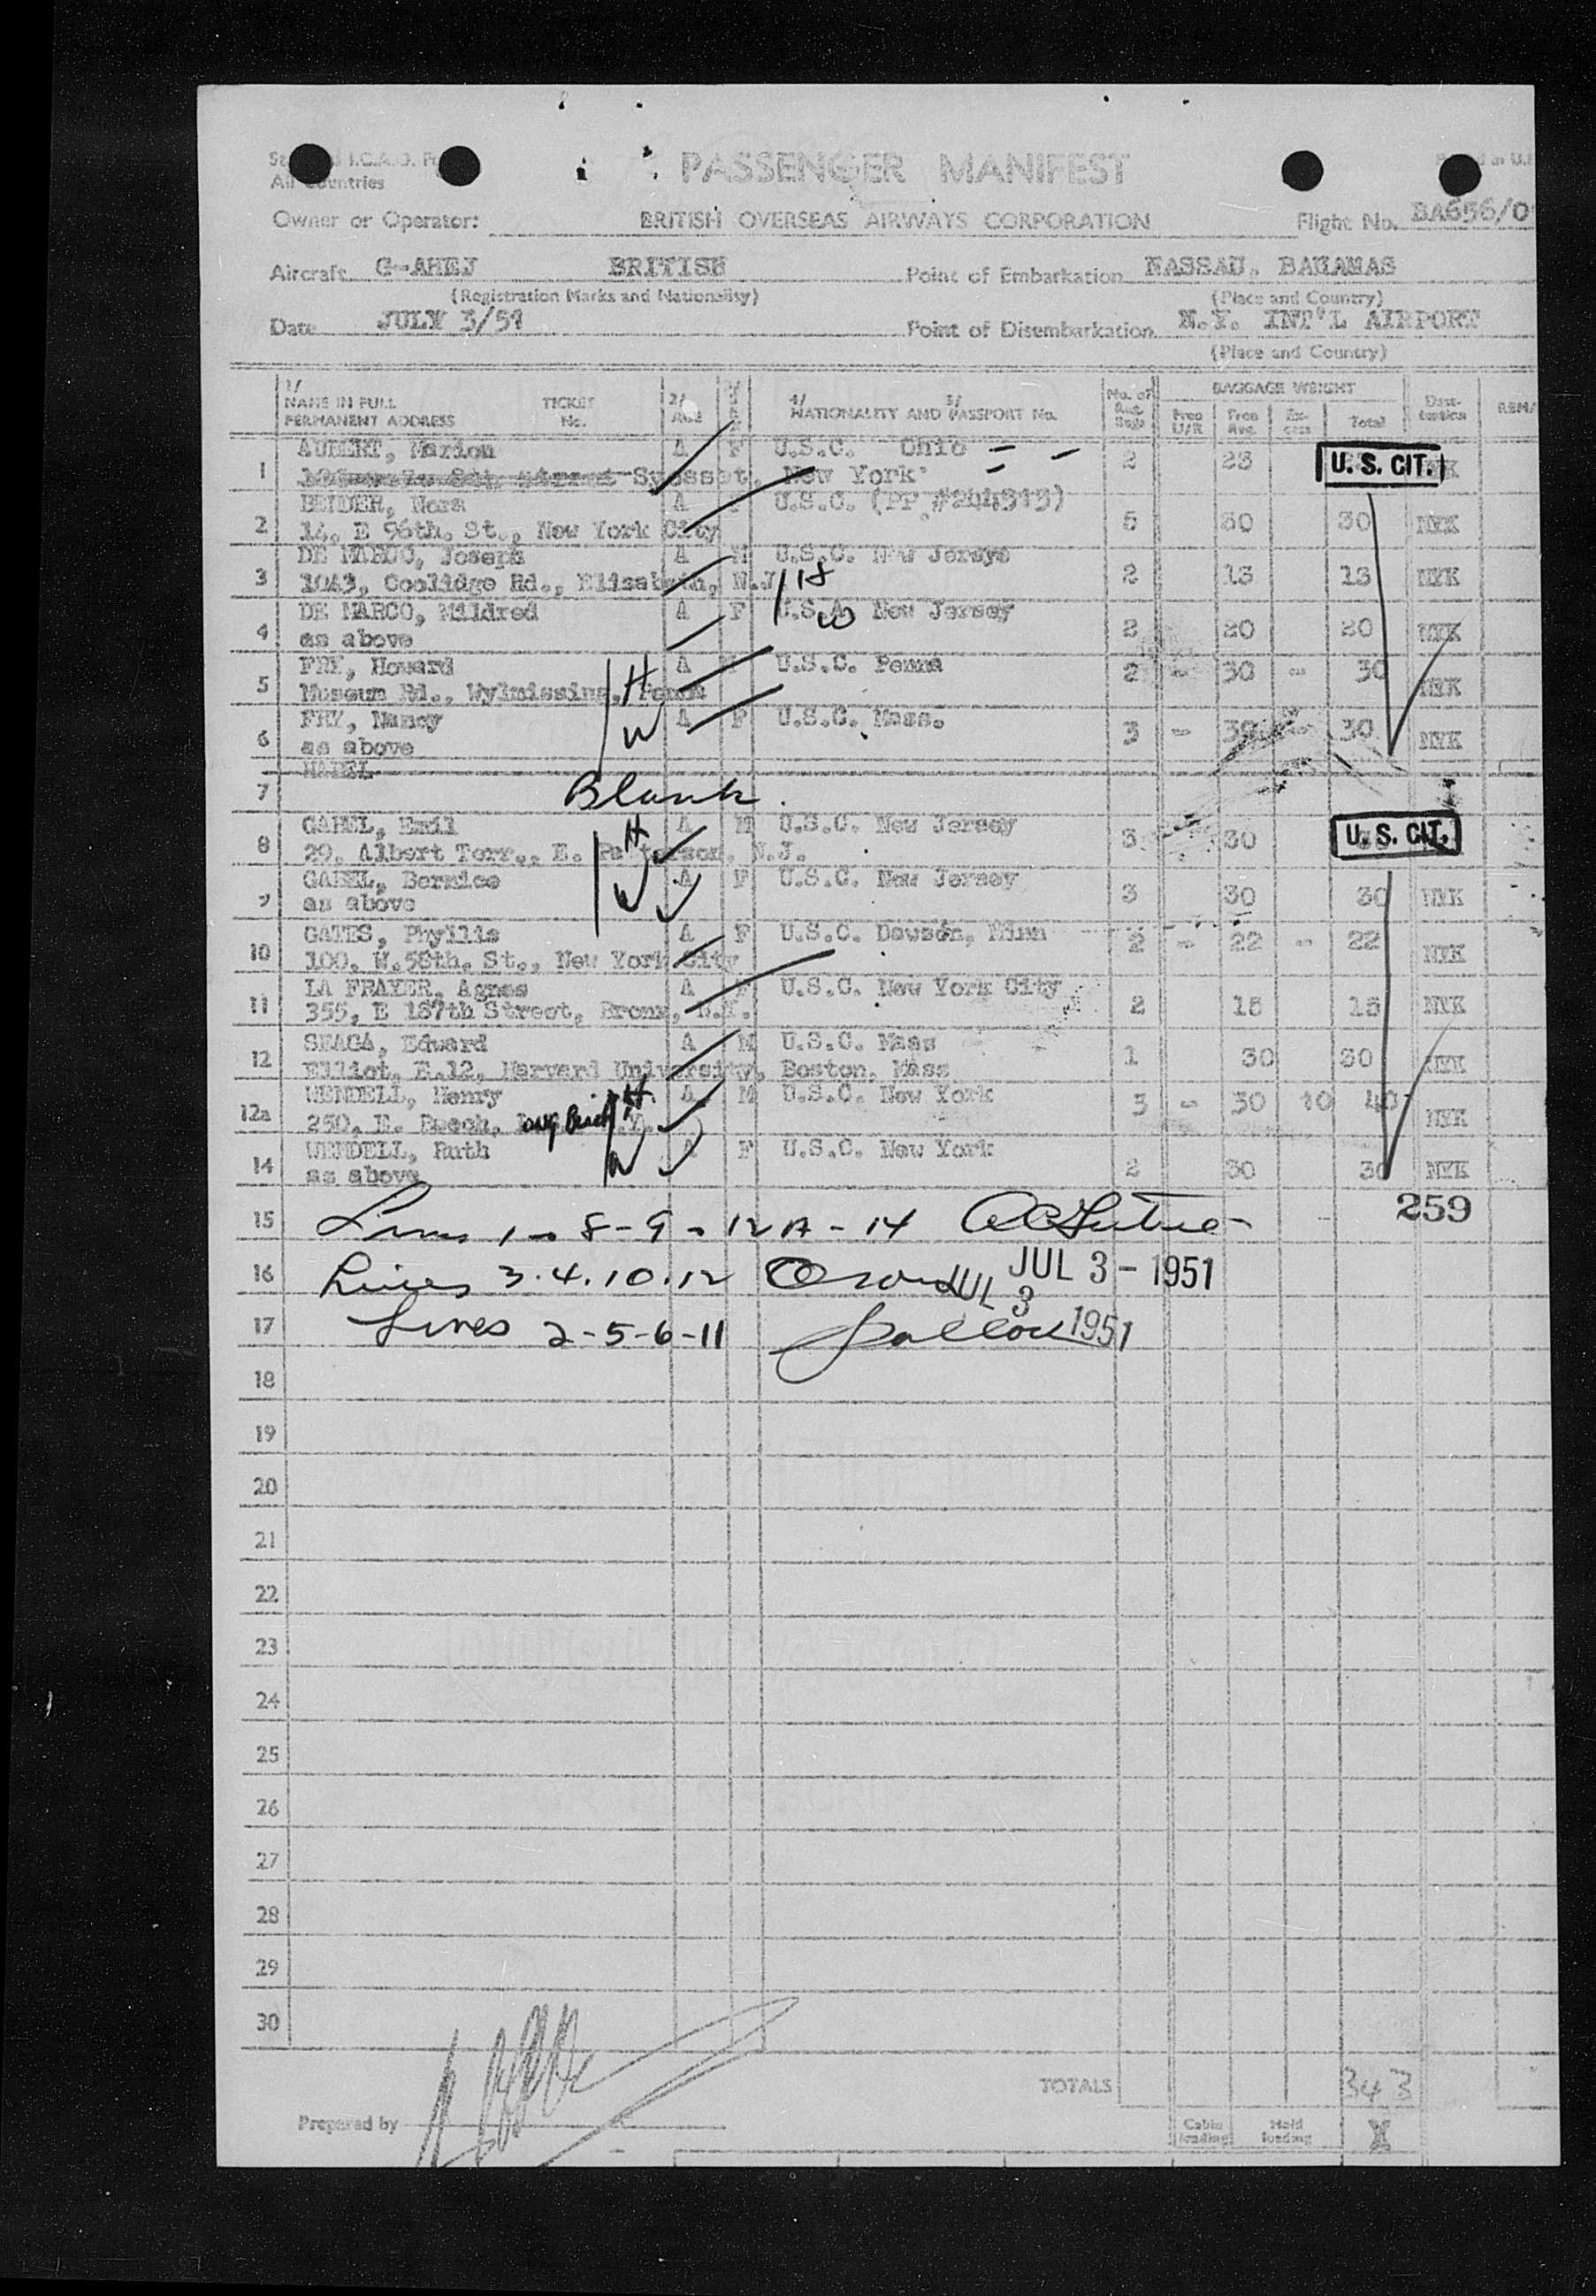 All Countries
PASSENGER MANIFEST
Owner or Operator: BRITISH OVERSEAS AIRWAYS CORPORATION Flight No. BA656/0
Aircraft G-AHEJ BRITISH Point of Embarkation NASSAU, BAHAMAS
(Registration Marks and Nationality) (Place and Country)
Date JULY 3/51 Point of Disembarkation N.Y. INT'L AIRPORT
(Place and Country)
1/ NAME IN FULL PERMANENT ADDRESS TICKET No. 2/ AGE 4/ 3/ NATIONALITY AND PASSPORT No. No. of BAGGAGE WEIGHT Free U/R Free Avg. Ex-cess Total Dest-ination REMA
1 AUBERT, Marion A F U.S.C. Ohio 2 23 U. S. CIT.
Syosset, New York
2 BENDER, Nora A U.S.C. (PP #244315) 5 30 30 NYK
14, E 96th. St., New York City
3 DE MARCO, Joseph A M U.S.C. New Jersye 2 13 13 NYK
1043, Coolidge Rd., Elizabeth, N.J. H
4 DE MARCO, Mildred A F U.S.A. New Jersey 2 20 20 NYK
as above W
5 FRY, Howard A U.S.C. Penna 2 - 30 - 30 NYK
Museum Rd., Wylmissing, Penna H
6 FRY, Nancy A F U.S.C. Mass. 3 - 30 30 NYK
as above W
7 Blank.
8 GABEL, Emil A M U.S.C. New Jersey 3 30 U. S. CIT.
29, Albert Terr., E. Patterson, N.J. H
9 GABEL, Bernice A F U.S.C. New Jersey 3 30 30 NYK
as above W
10 GATES, Phyllis A F U.S.C. Dawson, Minn 2 - 22 - 22 NYK
100, W.58th. St., New York City
11 LA FRAYER, Agnes A F U.S.C. New York City 2 15 15 NYK
355, E 187th Street, Bronx, N.Y.
12 SEAGA, Edward A M U.S.C. Mass 1 30 30 NYK
Elliot, E.12, Harvard University, Boston, Mass
12a WENDELL, Henry A M U.S.C. New York 3 - 30 10 40 NYK
250, E. Beech, Y. H
14 WENDELL, Ruth F U.S.C. New York 2 30 30 NYK
as above W
259
15 Lines 1 - 8 - 9 - 12A - 14
16 Lines 3.4.10.12 JUL 3 - 1951
JUL 3 1951
17 Lines 2-5-6-11
18
19
20
21
22
23
24
25
26
27
28
29
30
TOTALS 343
Prepared by Cabin loading Hold loading X